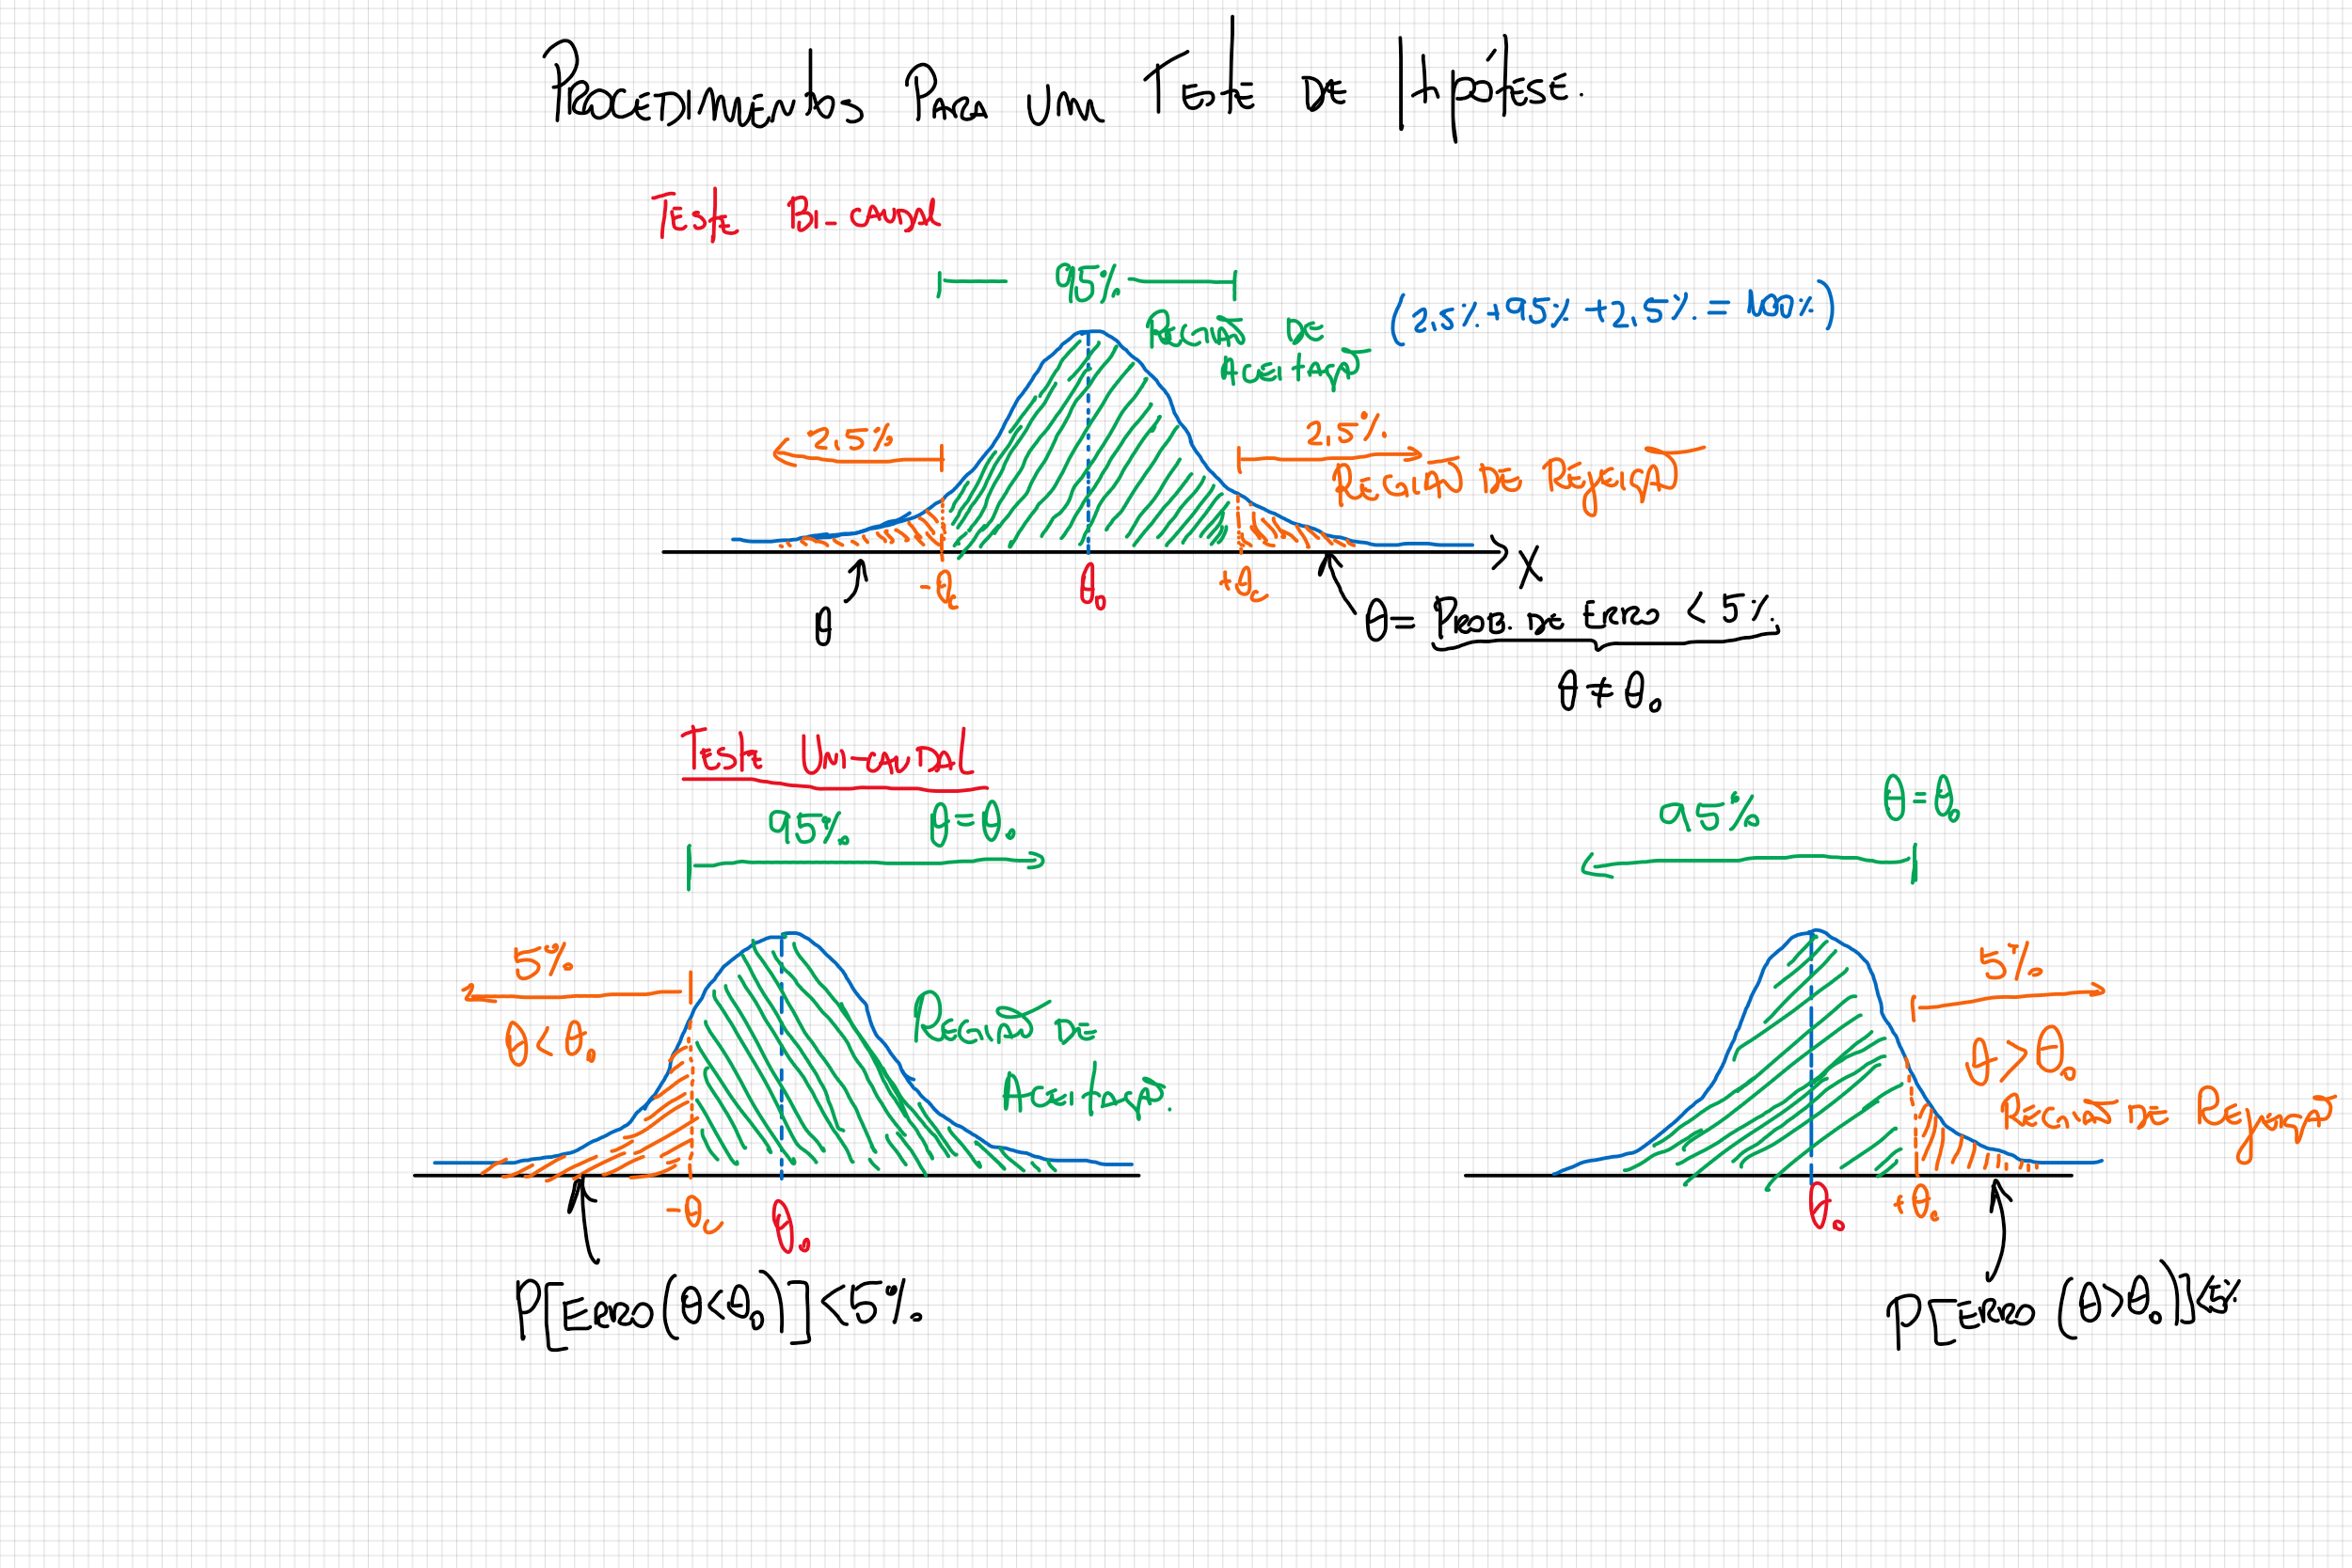 Procedimentos Para um Teste de Hipótese.
Teste Bi-caudal
95%
Região de
Aceitação
(2,5% + 95% + 2,5% = 100%)
2,5%
2,5%
Região de Rejeição
-θc
θ₀
+θc
X
θ
θ = Prob. de Erro < 5%
θ ≠ θ₀
Teste Uni-caudal
95% θ = θ₀
5%
θ < θ₀
Região de
Aceitação.
-θc
θ₀
P[Erro(θ<θ₀)] < 5%
95% θ = θ₀
5%
θ > θ₀
Região de Rejeição
θ₀
+θc
P[Erro (θ>θ₀)] < 5%